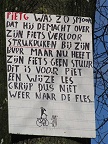 PIET G WAS ZO SMOOR
DAT HIJ DE MACHT OVER
ZIJN FIETS VERLOOR
STRUKDUIKEN BIJ ZIJN
BUUR MAAR NU HEEFT
ZIJN FIETS GEEN STUUR
DIT IS VOOR PIET
EEN WIJZE LES
GRIJP DUS NIET
WEER NAAR DE FLES.